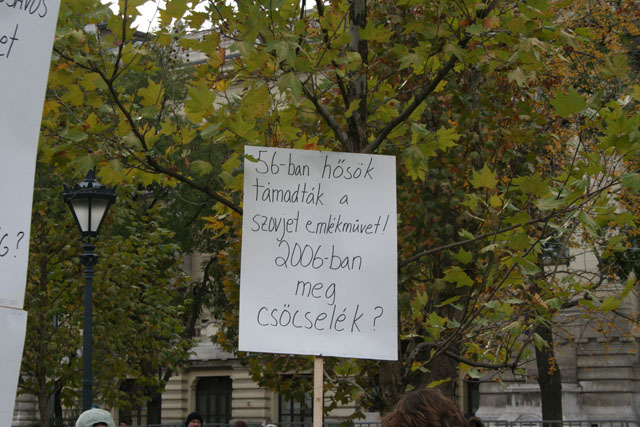 et
G?
56-ban hősök
támadták a
szovjet emlékművet!
2006-ban
meg
csöcselék?